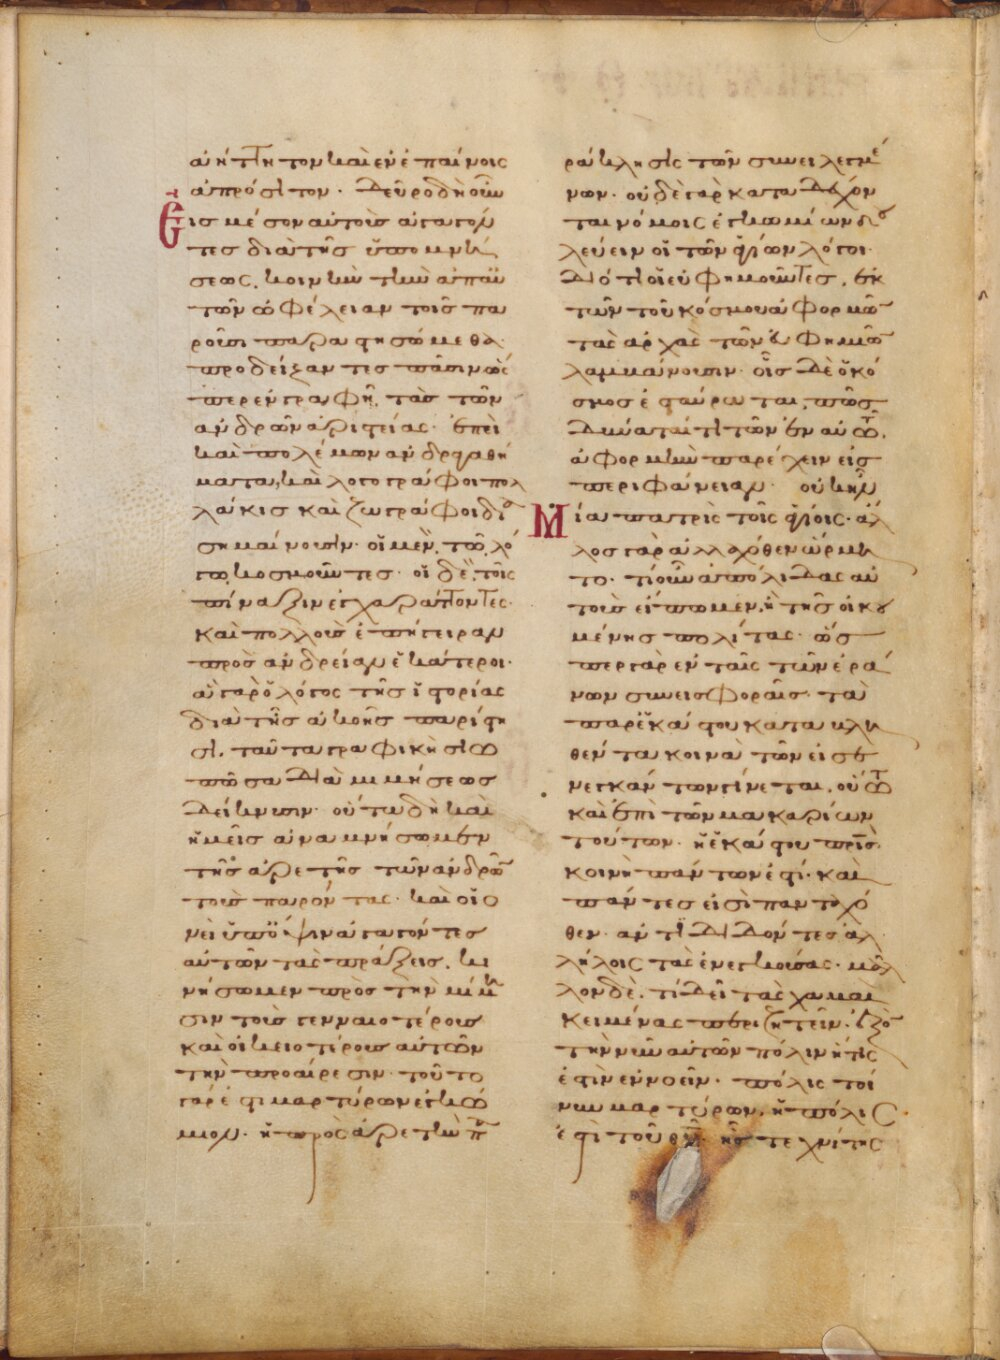 ἀνήττητον καὶ ἐν ἐπαίνοις
ἀπρόσιτον· δεῦρο δὴ οὖν
εἰς μέσον αὐτοὺς ἀγαγόν
τες διὰ τῆς ὑπομνή
σεως, κοινὴν τὴν ἀπ' αὐ
τῶν ὠφέλειαν τοῖς πα
ροῦσι παραστησώμεθα·
προδείξαντες πᾶσιν ὥσ
περ ἐν γραφῇ, τὰς τῶν
ἀνδρῶν ἀριστείας· ἐπεὶ
καὶ πολέμων ἀνδραγαθή
ματα, καὶ λογογράφοι πολ
λάκις καὶ ζωγράφοι δια
σημαίνουσιν· οἱ μὲν, τῷ λό
γῳ κοσμοῦντες· οἱ δὲ, τοῖς
πίναξιν ἐγχαράττοντες·
καὶ πολλοὺς ἐπήγειραν
πρὸς ἀνδρείαν ἑκάτεροι·
ἃ γὰρ ὁ λόγος τῆς ἱστορίας
διὰ τῆς ἀκοῆς παρίστη
σι, ταῦτα γραφικὴ σιω
πῶσα διὰ μιμήσεως
δείκνυσιν· οὕτω δὴ καὶ
ἡμεῖς ἀναμνήσωμεν
τῆς ἀρετῆς τῶν ἀνδρῶ
τοὺς παρόντας· καὶ οἱο
νεὶ ὑπ' ὄψιν ἀγαγόντες
αὐτῶν τὰς πράξεις, κι
νήσωμεν πρὸς τὴν μίμη
σιν τοὺς γενναιοτέρους
καὶ οἰκειοτέρους αὐτῶν
τὴν προαίρεσιν· τοῦτο
γάρ ἐστι μαρτύρων ἐγκώ
μιον· ἡ πρὸς ἀρετὴν πα
ράκλησις τῶν συνειλεγμέ
νων· οὐδὲ γὰρ καταδέχον
ται νόμοις ἐγκωμίων δου
λεύειν οἱ τῶν ἁγίων λόγοι·
διότι οἱ εὐφημοῦντες, ἐκ
τῶν τοῦ κόσμου ἀφορμῶ
τὰς ἀρχὰς τῶν εὐφημιῶ
λαμβάνουσιν· οἷς δὲ ὁ κό
σμος ἐσταύρωται, πῶς
δύναταί τι τῶν ἐν αὐτῷ,
ἀφορμὴν παρέχειν εἰς
περιφάνειαν· οὐκ ἦν
μία πατρὶς τοῖς ἁγίοις· ἄλ
λος γὰρ ἀλλαχόθεν ὥρμη
το· τί οὖν ἀπόλιδας αὐ
τοὺς εἴπωμεν, ἢ τῆς οἰκου
μένης πολίτας· ὥσ
περ γὰρ ἐν ταῖς τῶν ἐρά
νων συνεισφοραῖς· τὰ
παρ' ἑκάστου καταβλη
θέντα κοινὰ τῶν εἰσε
νεγκάντων γίνεται, οὕτω
καὶ ἐπὶ τῶν μακαρίων
τούτων· ἡ ἑκάστου πρὶς
κοινὴ πάντων ἐστί· καὶ
πάντες εἰσὶ πανταχό
θεν· ἀντιδιδόντες ἀλ
λήλοις τὰς ἐνεγκούσας· μᾶλ
λον δὲ, τί δεῖ τὰς χαμαὶ
κειμένας περιζητεῖν, ἐξὸ
τὴν νῦν αὐτῶν πόλιν ἥτις
ἐστὶν ἐννοεῖν· πόλις τοί
νυν μαρτύρων, ἡ πόλις
ἐστὶ τοῦ θυ· ἧς τεχνίτης